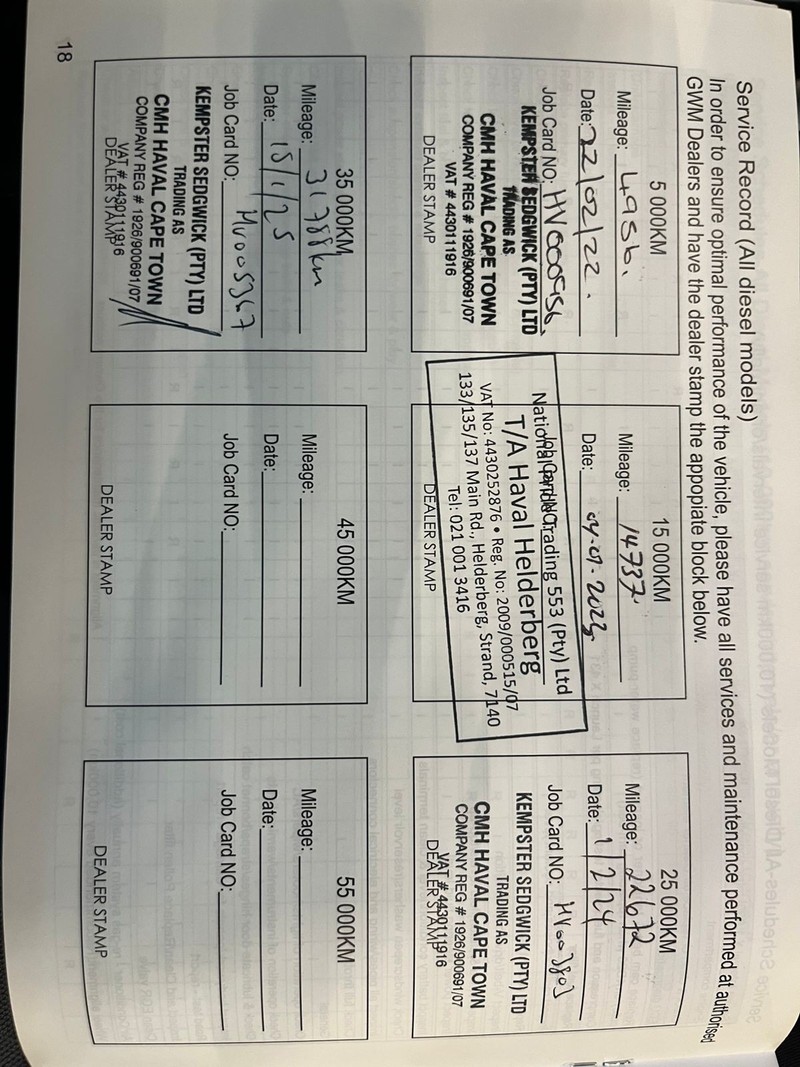 Service Record (All diesel models)
In order to ensure optimal performance of the vehicle, please have all services and maintenance performed at authorised
GWM Dealers and have the dealer stamp the appopiate block below.
5 000KM
Mileage: 4956.
Date: 22/02/22.
Job Card NO: HV000956
KEMPSTER SEDGWICK (PTY) LTD
TRADING AS
CMH HAVAL CAPE TOWN
COMPANY REG # 1926/900691/07
VAT # 4430111916
DEALER STAMP
15 000KM
Mileage: 14737
Date: 04-01-2023
Job Card NO:
National Trading 553 (Pty) Ltd
T/A Haval Helderberg
VAT No: 4430252876 • Reg. No: 2009/000515/07
133/135/137 Main Rd., Helderberg, Strand, 7140
Tel: 021 001 3416
DEALER STAMP
25 000KM
Mileage: 22672
Date: 1/2/24
Job Card NO: HV003803
KEMPSTER SEDGWICK (PTY) LTD
TRADING AS
CMH HAVAL CAPE TOWN
COMPANY REG # 1926/900691/07
VAT # 4430111916
DEALER STAMP
35 000KM
Mileage: 31788km
Date: 15/1/25
Job Card NO: HV005367
KEMPSTER SEDGWICK (PTY) LTD
TRADING AS
CMH HAVAL CAPE TOWN
COMPANY REG # 1926/900691/07
VAT # 4430111916
DEALER STAMP
45 000KM
Mileage:
Date:
Job Card NO:
DEALER STAMP
55 000KM
Mileage:
Date:
Job Card NO:
DEALER STAMP
18